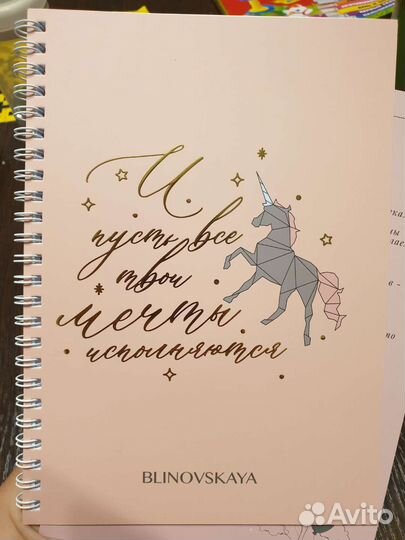 И
пусть все
твои
мечты
исполняются
BLINOVSKAYA
Avito